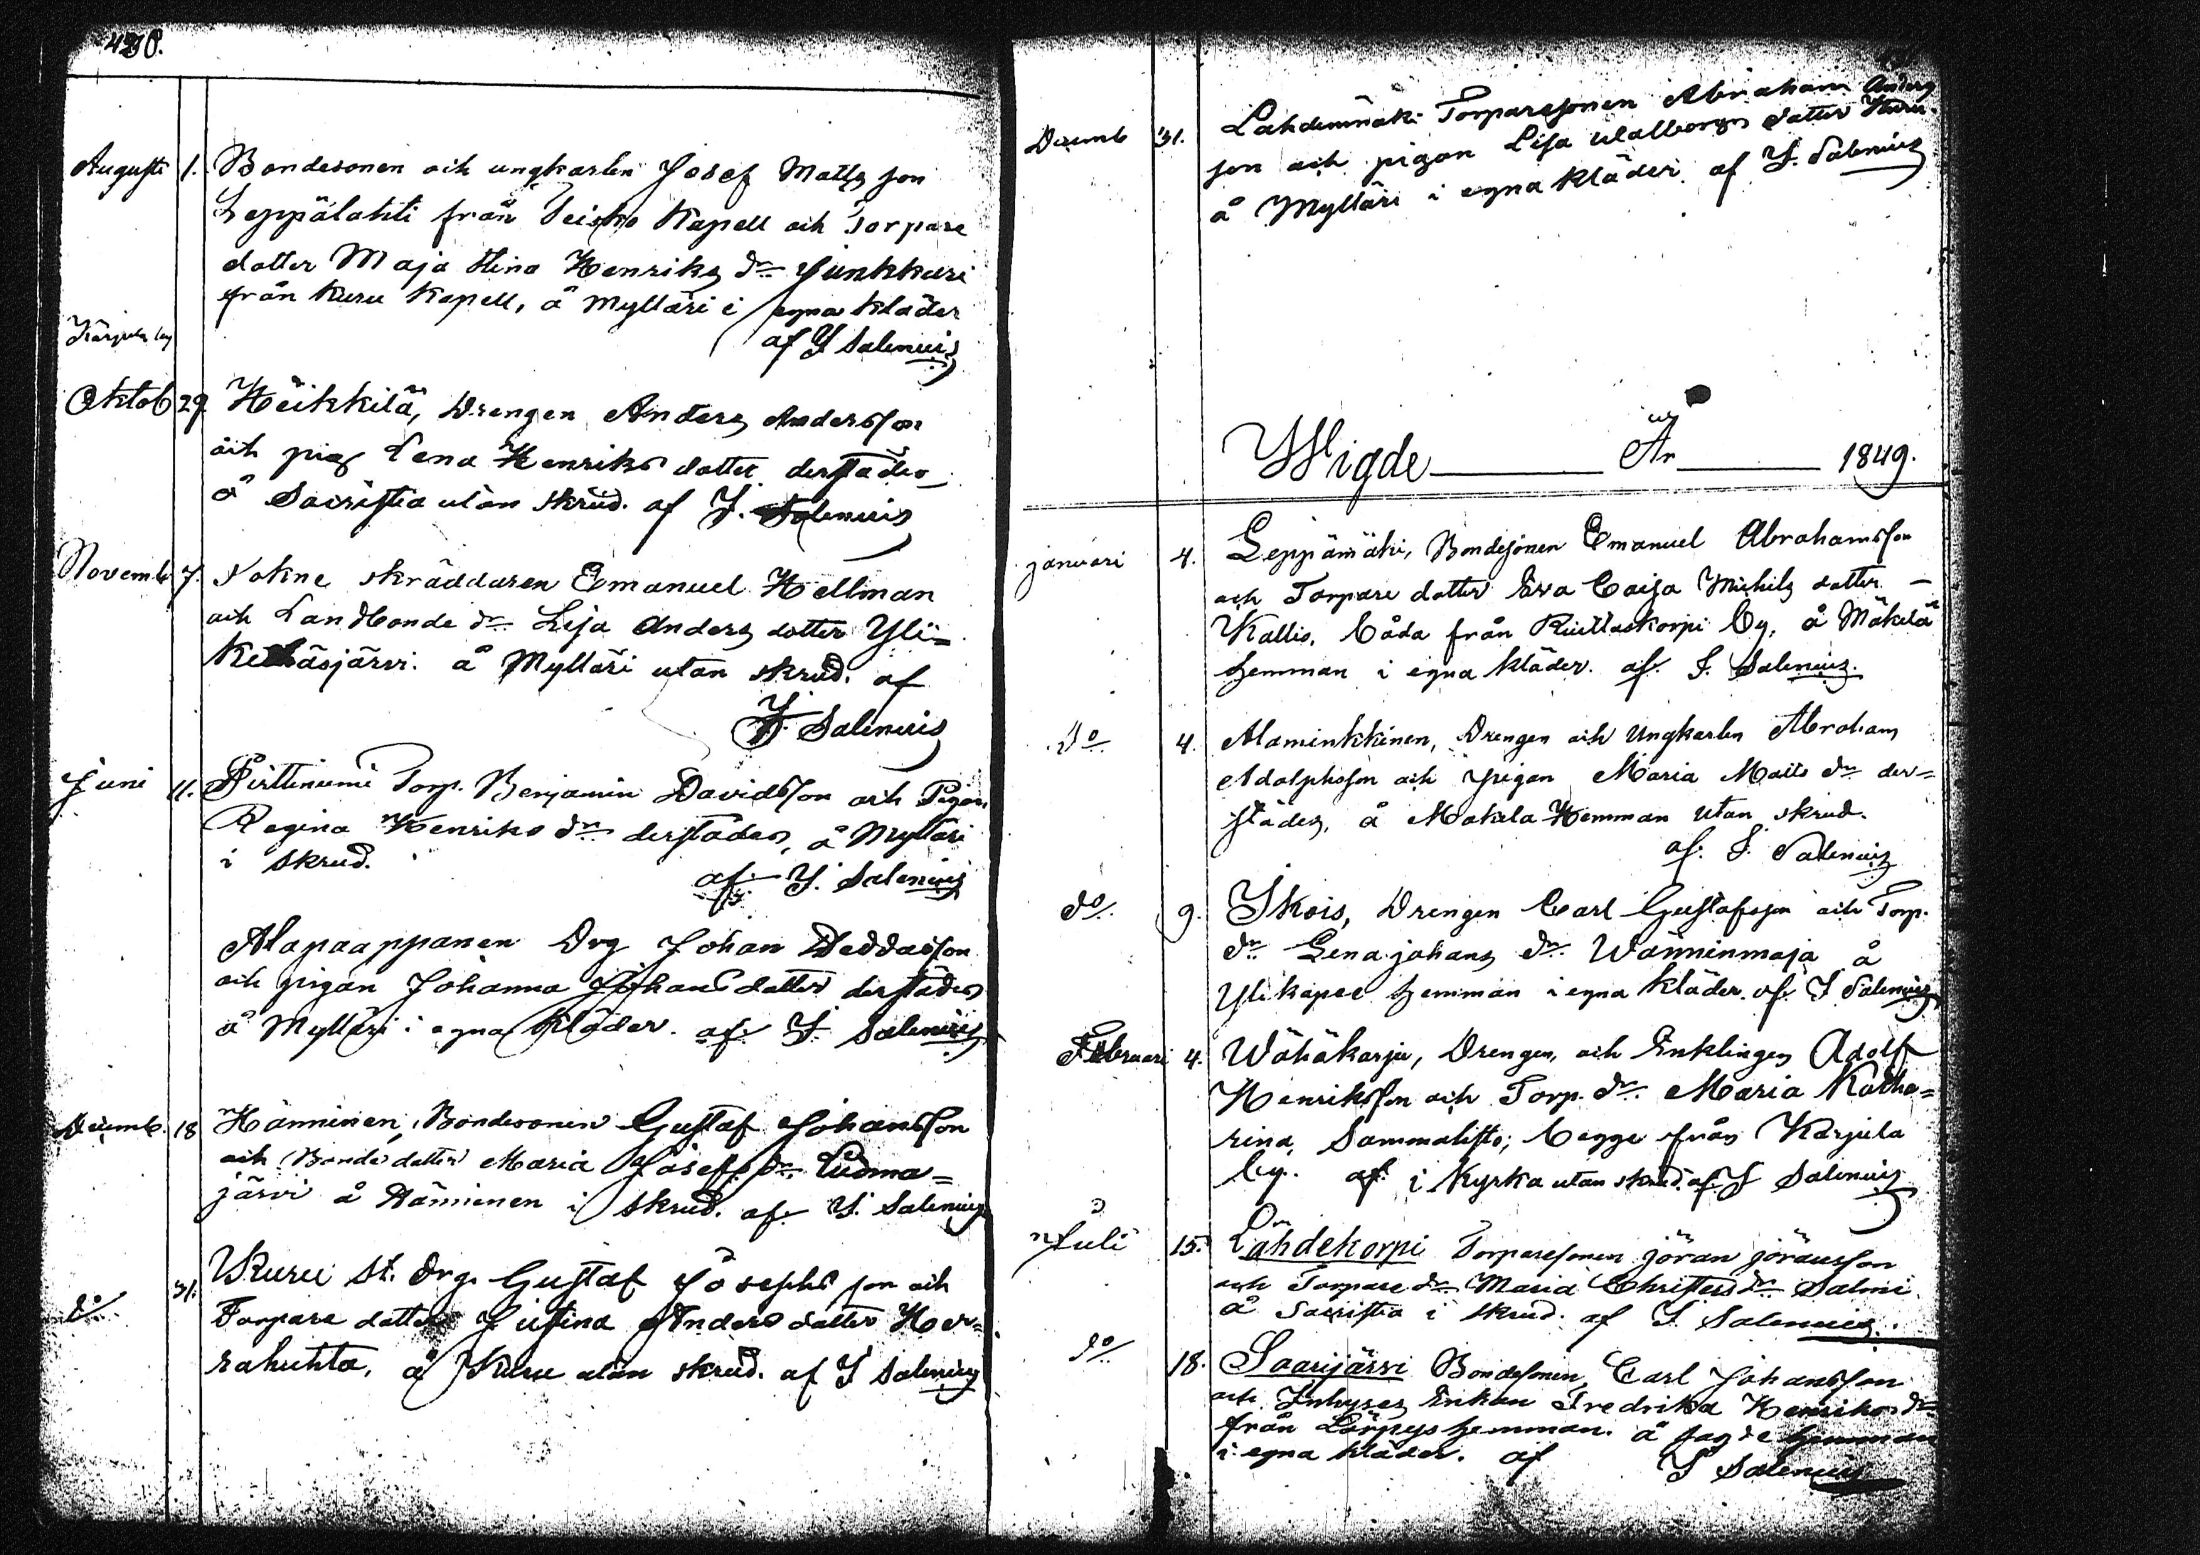 Augusti 1. Bondesonen och ungkarlen Josef Matts son
Leppälahti från Teisko Kapell och Torpare
dotter Maja Stina Henriks dr Junkkari
från Kuru Kapell, å Mylläri i egna kläder
af J Salenius
Oktob 29. Heikkilä, Drengen Anders Andersson
och pig Lena Henriks dotter derstädes
å Sacristia utan skrud. af J. Salenius
Novemb 7. Sokne skräddaren Emanuel Hellman
och Landbonde dr Lisa Anders dotter Yli=
å Mylläri utan skrud. af
J. Salenius
Juni 11. Pirttiniemi Torp. Benjamin Davidsson och Pigan
Regina Henriks dr derstädes, å Mylläri
i skrud.
af J. Salenius
Alapaappanen Drg Johan
och pigan Johanna Johans dotter derstädes
å Mylläri i egna kläder. af J. Salenius
Decemb. 18 Hänninen, Bondesonen Gustaf Johansson
och Bonde dotter Maria Josefs dr Luoma=
järvi å Hänninen i skrud. af J. Salenius
do. 31. Kuru St. Drg. Gustaf Josephs son och
Torpare dotter Justina Anders dotter Her=
rahuhta, å Kuru utan skrud. af J Salenius
Decemb 31. Lahdenmäki Torparesonen Abraham Anders
son och pigan Lisa Walborg dotter Kuru.
å Mylläri i egna kläder af J. Salenius
Wigde År 1849.
januari 4. Leppämäki, Bondesonen Emanuel Abrahamsson
och Torpare dotter Eva Caisa Michels dotter
Kallio, båda från Riuttaskorpi by, å Mäkelä
hemman i egna kläder. af J. Salenius.
Do 4. Alaminkkinen, Drengen och Ungkarlen Abraham
Adolphsson och pigan Maria Matts dr der=
städes, å Makela Hemman utan skrud.
af. J. Salenius
do. 9. Drengen Carl Gustafsson och Torp.
dr Lena johans dr Wänninmaja å
Ylikapee hemman i egna kläder. af J Salenius
Februari 4. Wähäkarju, Drengen, och Enklingen Adolf
Henriksson och Torp. dr Maria Katha=
rina, Sammalisto, begge från Karjula
by. af i Kyrka utan skrud. af J Salenius
Juli 15. Lähdekorpi Torparesonen jöran jöransson
och Torpare dr Maria Christers dr Salmi
å Sacristia i skrud. af J. Salenius.
do 18. Saarijärvi Bondesonen Carl Johansson
och Inhyses Enkan Fredrika Henriks dr
från hemman. å sagde hemman
i egna kläder. af J Salenius